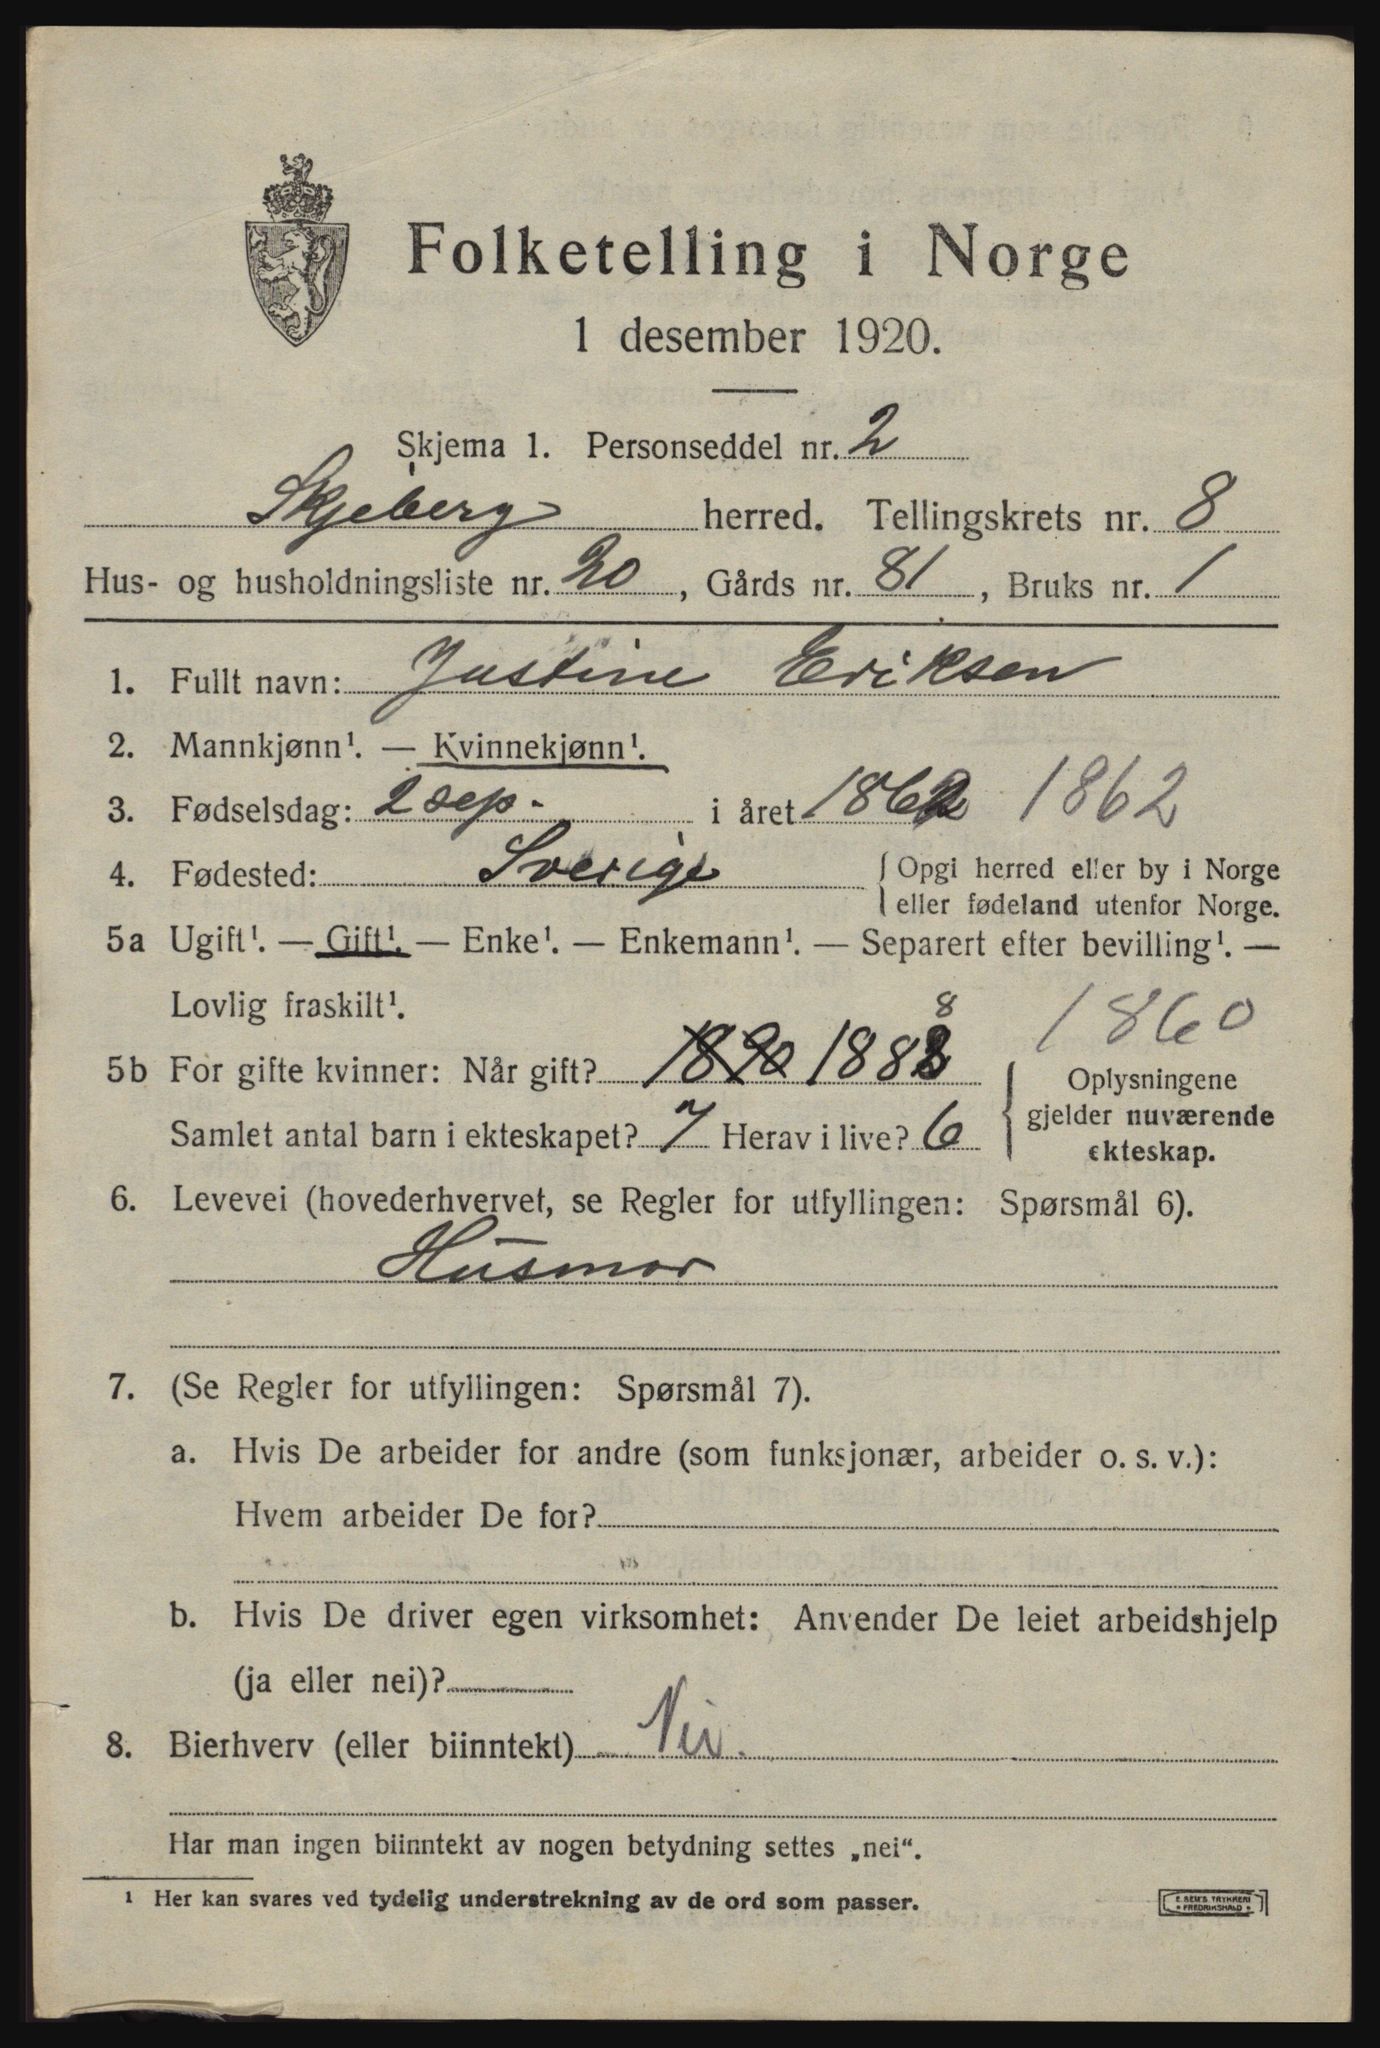 Folketelling i Norge
1 desember 1920.
Skjema 1. Personseddel nr. 2
Skjeberg herred. Tellingskrets nr. 8
Hus- og husholdningsliste nr. 20, Gårds nr. 81, Bruks nr. 1
1. Fullt navn: Justine Eriksen
2. Mannkjønn¹. — Kvinnekjønn¹.
3. Fødselsdag: 2 sep. i året 1862 1862
4. Fødested: Sverige
{ Opgi herred eller by i Norge
eller fødeland utenfor Norge.
5a Ugift¹. — Gift¹. — Enke¹. — Enkemann¹. — Separert efter bevilling¹. —
Lovlig fraskilt¹.
8
1860
5b For gifte kvinner: Når gift? 1890 1888
Samlet antal barn i ekteskapet? 7 Herav i live? 6
{ Oplysningene
gjelder nuværende
ekteskap.
6. Levevei (hovederhvervet, se Regler for utfyllingen: Spørsmål 6).
Husmor
7. (Se Regler for utfyllingen: Spørsmål 7).
a. Hvis De arbeider for andre (som funksjonær, arbeider o. s. v.):
Hvem arbeider De for?
b. Hvis De driver egen virksomhet: Anvender De leiet arbeidshjelp
(ja eller nei)?
8. Bierhverv (eller biinntekt) Nei.
Har man ingen biinntekt av nogen betydning settes „nei“.
¹ Her kan svares ved tydelig understrekning av de ord som passer.
E. SEM'S TRYKKERI
* FREDRIKSHALD *